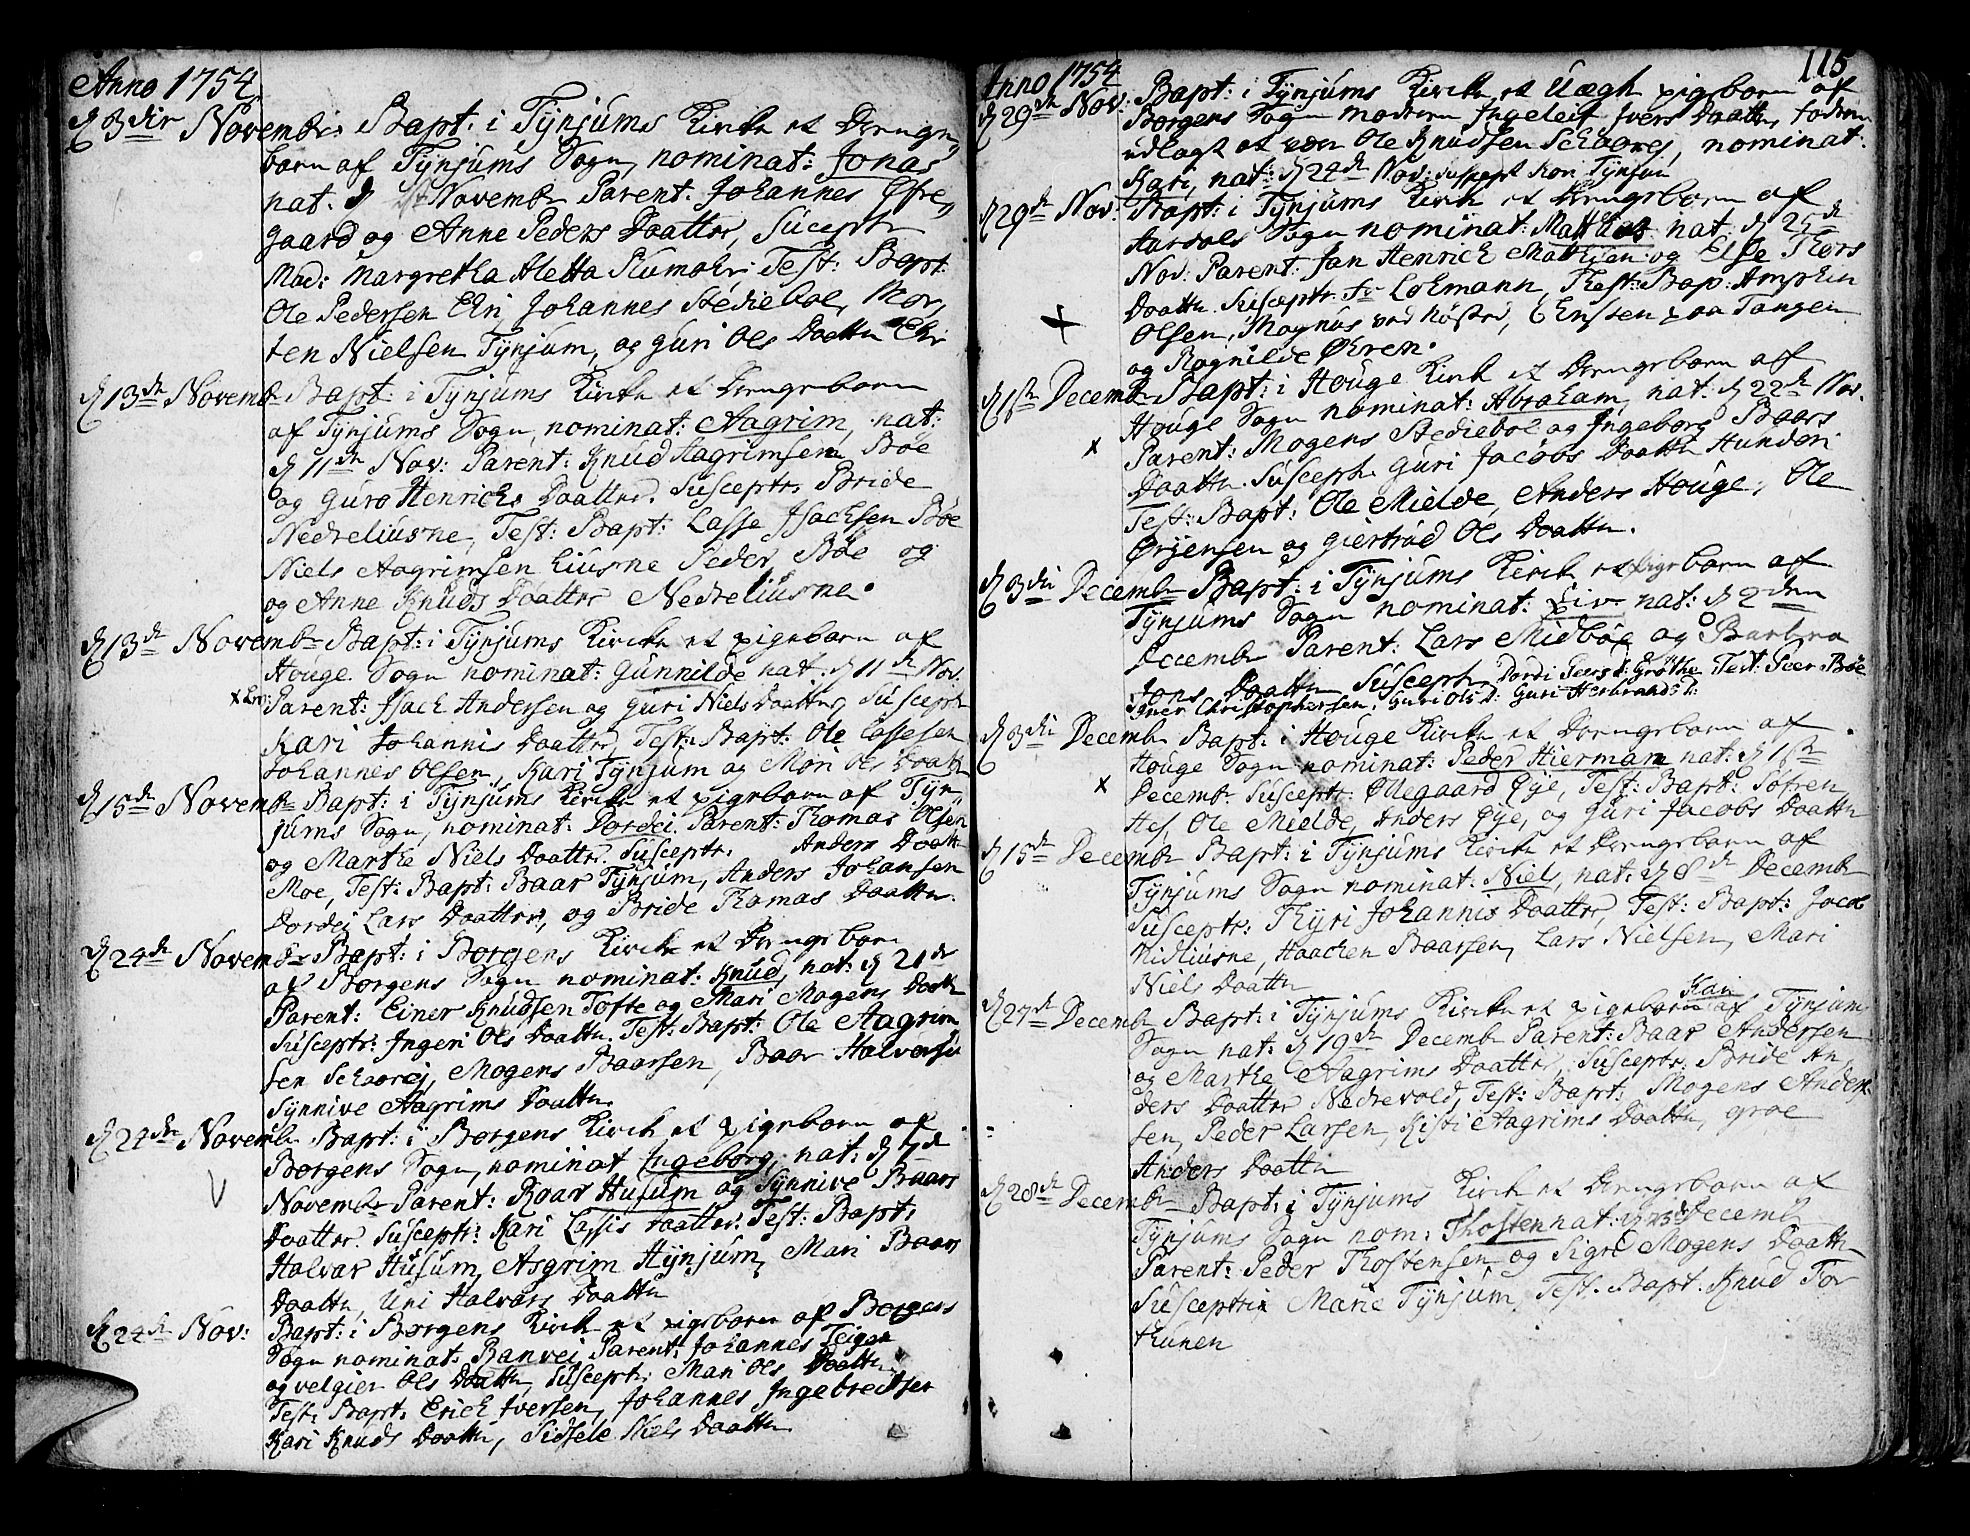 Anno 1754
d 3die Novembr: Bapt: i Tÿnjums Kirke et Drenge,,
barn af Tÿnjums Sogn, nominat: Jonas
nat. d Novembr Parent: Johannes Øfre,,
gaard og Anne Peders Daatter, Suscept
Mad: Margretha Aletta Test: Bapt:
Ole Pedersen Eri, Johannes Stedieboe, Mor,
ten Nielsen Tÿnjum, og Guri Ols Daattr Eri
d 13de Novemb Bapt: i Tÿnjums Kirke et Drengebarn
af Tÿnjums Sogn, nominat: Aagrim, nat:
d 11de Nov: Parent: Knud Hagrimsen Bøe
og Guro Henrichs Daatter. Susceptr. Bride
Nedreliusne, Test: Bapt: Lasse Jsachsen Bøe
Niels Aagrimsen Liusne Peder Bøe og
og Anne Knuds Daatter Nedreliusne.
d 13de Novembr Bapt: i Tÿnjums Kirke et pigebarn af
Houge Sogn nominat: Gunnilde nat: d 11de Nov.
x Eri Parent: Jsach Andersen og Guri Niels Daatter, Suscept
Kari Johannis Daatter, Test: Bapt: Ole Lassesen
Johannes Olsen, Kari Tÿnjum og Mari Ols Daatt
d 15de Novembr Bapt: i Tÿnjums Kirke et pigebarn af Tÿn
jums Sogn, nominat: Dordei. Parent: Thomas Olsen
og Marthe Niels Daatter. Susceptr. Anders Daatter
Moe, Test: Bapt: Baar Tÿnjum, Anders Johansen
Dordej Lars Daatter, og Bride Thomas Daatter.
d 24de Novembr Bapt: i Borgens Kirke et Drengebarn
af Borgens Sogn nominat: Knud, nat: d 21de
Parent: Einer Knudsen Tofte og Mari Mogens Daatter
Susceptr: Jngeri Ols Daatter. Test: Bapt: Ole Aagrim
sen Schaarej, Mogens Baarsen, Baar Halversen
Sÿnnive Aagrims Daatter
d 24de Novembr Bapt: i Borgens Kirck et pigebarn af
Borgens Sogn, nominat Jngeborg, nat: d 17de
Novembr Parent: Roar Husum og Sÿnnive Baars
Daatter Susceptr: Kari Lassis Daatter. Test: Bapt:
Halvar Husum, Asgrim Hÿnjum, Mari Baars
Daatter, Uni Halvars Daatter
d 24de Nov: Bapt: i Borgens Kirck et pigebarn af Borgens
Sogn nominat: Ranvei Parent: Johannes Teigen
og Velgier Ols Daatter, Suscept: Mari Ols Daatter
Test: Bapt: Erich Jversen, Johannes Jngebredtsen
Kari Knuds Daatter, Sidsele Niels Daatter
115
Anno 1754
d 29de Nov: Bapt: i Tÿnjums Kirke et Uægte pigebarn af
Borgens Sogn Moderen Jngeleif Jvers Daatter, Faderen
udlagt at være Ole Knudsen Schaarej, nominat:
Kari, nat: d 24de Nov: Tÿnjum
d 29de Nov: Bapt: i Tÿnjums Kirck et Drengebarn af
Aardals Sogn nominat: Matthias nat: d 25de
Nov: Parent: Jan Henrich Mathsen og Else Thors
Daatter. Susceptr. Fr Lohmann, Test: Bap: Amphin
+ Olsen, Magnus ved Kosted, Ehrsten paa Tangen
og Ragnilde Øhren.
d 1ste Decembr Bapt: i Houge Kirck et Drengebarn af
Houge Sogn nominat: Abraham, nat: d 22de Nov.
x Parent: Mogens Stedieboe og Jngeborg Baars
Daatter. Suscept: Guri Jacobs Daatter Hunderi
Test: Bapt: Ole Mielde, Anders Houge, Ole
Ørjensen og Giertrud Ols Daatter.
d 3die Decembr Bapt: i Tÿnjums Kirck et pigebarn af
Tÿnjums Sogn nominat: Liv nat: d 2den
Decembr Parent: Lars Midbøe og Barbra
Jons Daatter Suscept: Dordi Peers d: Grøthe Test: Peer Bøe
Christophersen, Guri Ols d: Guri Herbrands d:
d 3die Decembr Bapt: i Houge Kirke et Drengebarn af
Houge Sogn nominat: Peder Hierman nat: d 1ste
x Decembr. Susceptr: Ollegaard Eÿe, Test: Bapt: Søfren
Hes, Ole Mielde, Anders Eÿe, og Guri Jacobs Daatter
d 15de Decembr Bapt: i Tÿnjums Kirck et Drengebarn af
Tÿnjums Sogn nominat: Niels, nat: d 8de Decembr
Susceptr: Thÿri Johannis Daatter, Test: Bapt: Jacob
Nidliusne, Haachen Baarsen, Lars Nielsen, Mari
Niels Daatter
d 27de Decembr Bapt: i Tÿnjums Kirke et pigebarn Kari af Tÿnjums
Sogn nat: d 19de Decembr Parent: Baar Andersen
og Marthe Aagrims Daatter, Susceptr: Bride An,
ders Daatter Nedrevold, Test: Bapt: Mogens Ander
sen, Peder Larsen, Kisti Aagrims Daatter, groe
Anders Daatter
d 28de Decembr Bapt: i Tÿnjums Kirck et Drengebarn af
Tÿnjums Sogn nom: Thosten nat: d 23de Decembr
Parent: Peder Thostensen og Sigri Mogens Daatter
Susceptrix Marie Tÿnjum, Test. Bapt. Knud Tor
thunen